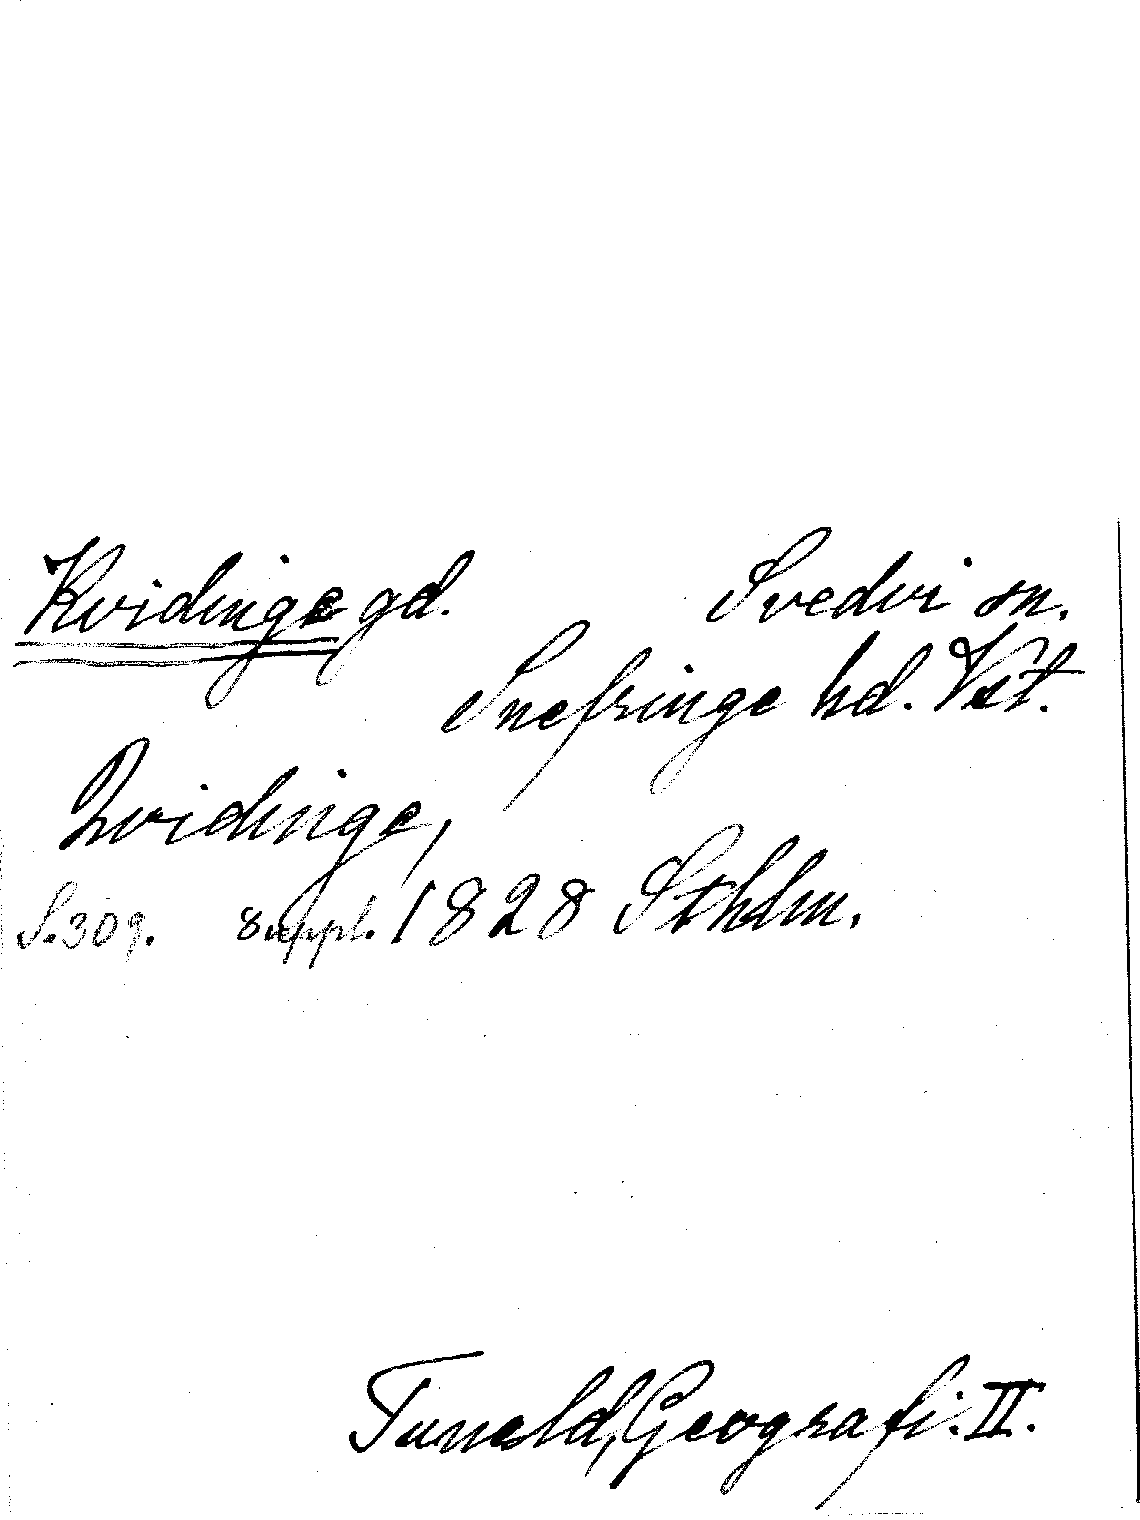 Kvidinge gd. Svedvi sn.
Snefringe hd. Vstl.
Qvidinge,
S. 309. 8 uppl. 1828 Sthlm.
Tuneld, Geografi. II.